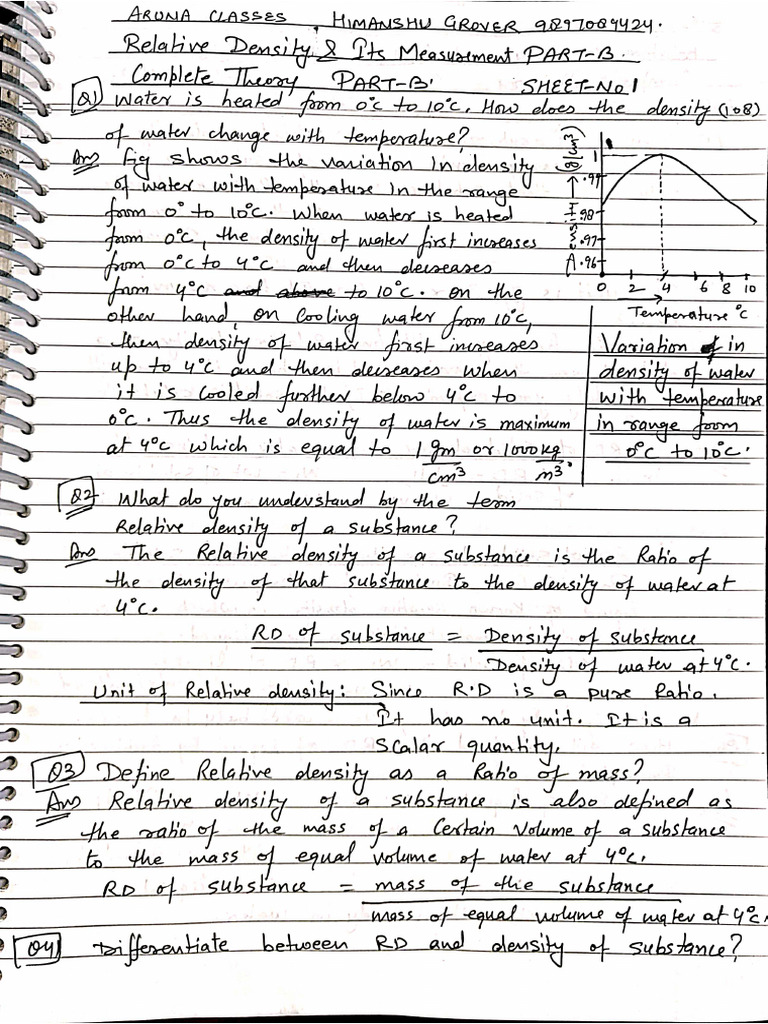 ARUNA CLASSES, HIMANSHU GROVER 9897089424.
Relative Density & Its Measurement PART-B.
Complete Theory PART-B. SHEET-No 1
Q1 Water is heated from 0°C to 10°C. How does the density (108)
of water change with temperature?
Ans Fig shows the variation in density
of water with temperature in the range
from 0° to 10°C. When water is heated
from 0°C, the density of water first increases
from 0°C to 4°C and then decreases
from 4°C and above to 10°C. on the
other hand, on cooling water from 10°C,
then density of water first increases
up to 4°C and then decreases when
it is cooled further below 4°C to
0°C. Thus the density of water is maximum
at 4°C which is equal to 1 gm/cm³ or 1000 kg/m³.
Density → g/cm³
1
.99
.98
.97
.96
0 2 4 6 8 10
Temperature °C
Variation of in
density of water
with temperature
in range from
0°C to 10°C.
Q2 What do you understand by the term
Relative density of a substance?
Ans The Relative density of a substance is the Ratio of
the density of that substance to the density of water at
4°C.
RD of substance = Density of substance
Density of water at 4°C.
Unit of Relative density: Since R.D is a pure Ratio.
It has no unit. It is a
Scalar quantity.
Q3 Define Relative density as a Ratio of mass?
Ans Relative density of a substance is also defined as
the ratio of the mass of a Certain Volume of a substance
to the mass of equal volume of water at 4°C.
RD of substance = mass of the substance
mass of equal volume of water at 4°C.
Q4 Differentiate between RD and density of substance?